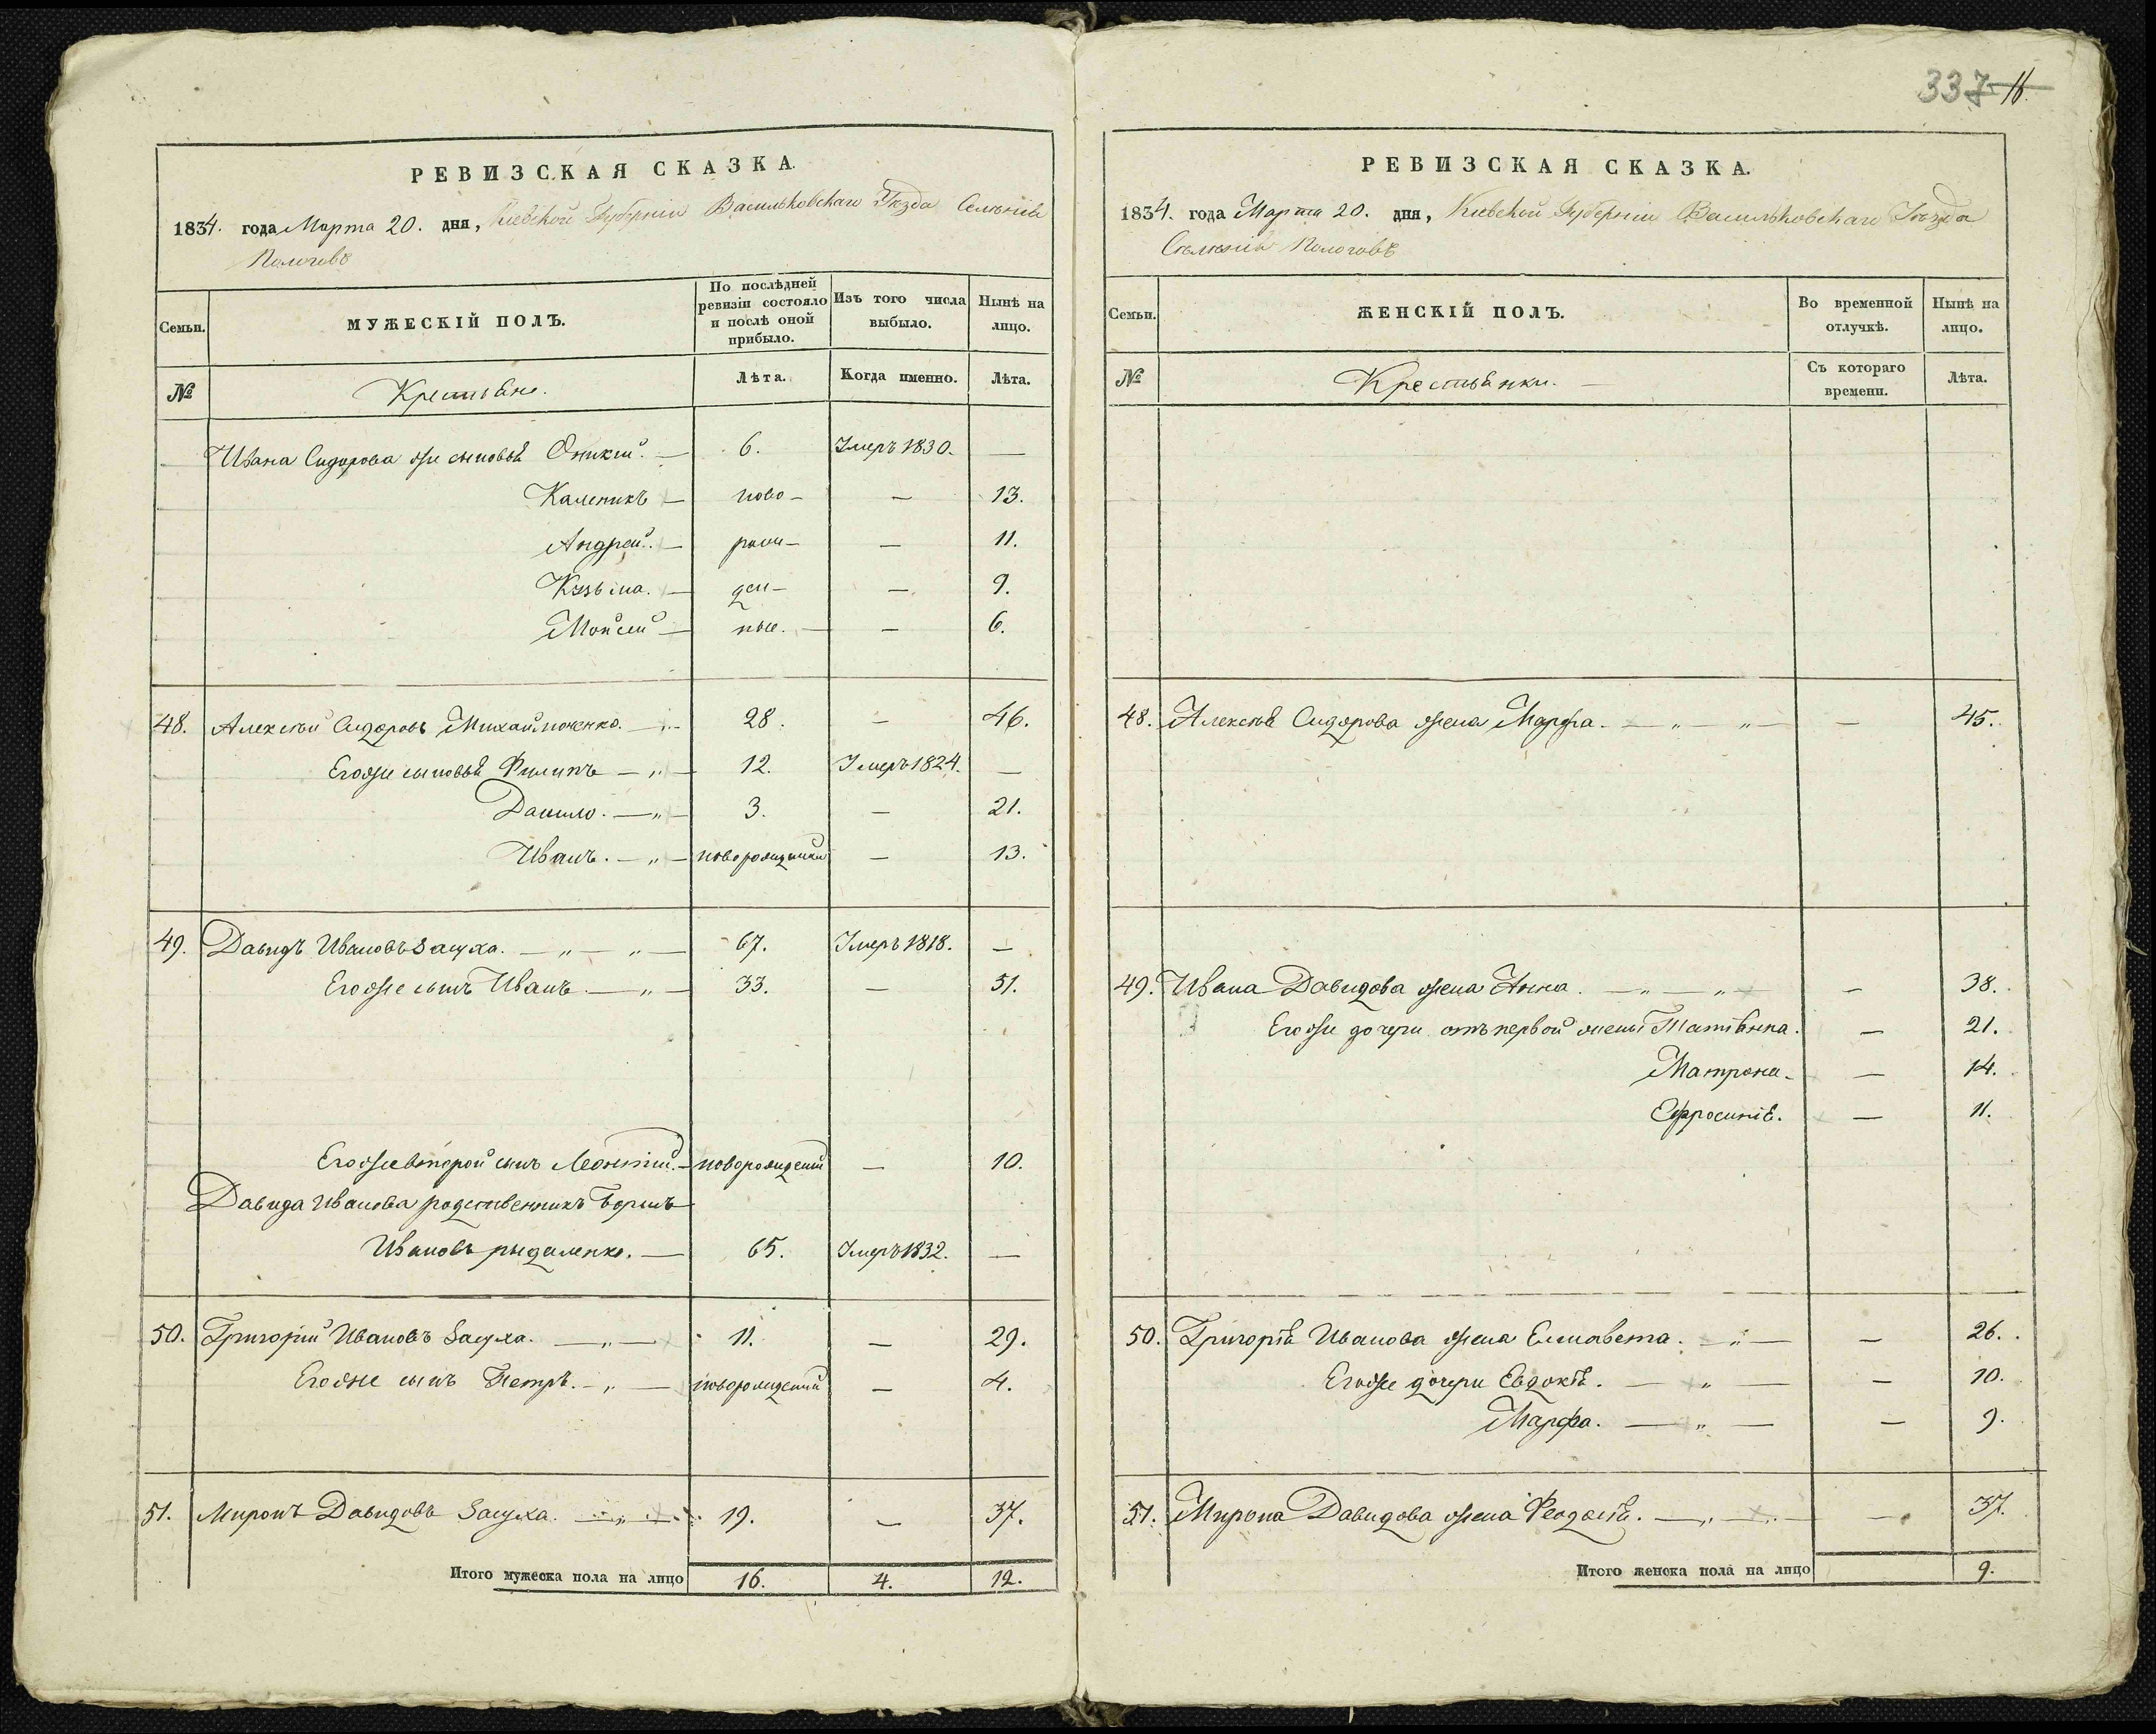 337 16.
РЕВИЗСКАЯ СКАЗКА.
1834. года Марта 20. дня, Кіевской Губерніи Васильковскаго Уѣзда Селенія
Пологовъ
Семьи. МУЖЕСКІЙ ПОЛЪ. По послѣдней ревизіи состояло и послѣ оной прибыло. Изъ того числа выбыло. Нынѣ на лицо.
№ Крестьяне. Лѣта. Когда именно. Лѣта.
Ивана Сидорова же сыновья Оникій. — 6. Умеръ 1830. —
Каленикъ — ново- — 13.
Андрей. — рож- — 11.
Кузьма. — ден- — 9.
Мойсей — ные. — — 6.
48. Алексѣй Сидоровъ Михайлюченко. — 28. — 46.
Его же сыновья Филипъ — „ — 12. Умеръ 1824. —
Данило. — „ — 3. — 21.
Иванъ. — „ — новорожденный — 13.
49. Давидъ Ивановъ Засуха. — „ — „ — 67. Умеръ 1818. —
Его же сынъ Иванъ — „ — 33. — 51.
Его же второй сынъ Леонтій. — новорожденый — 10.
Давида Иванова родственникъ Борисъ
Ивановъ — 65. Умеръ 1832. —
50. Григорій Ивановъ Засуха. — „ — 11. — 29.
Его же сынъ Петръ. — „ — новорожденый — 4.
51. Миронъ Давидовъ Засуха. — „ — 19. — 37.
Итого мужеска пола на лицо 16. 4. 12.
РЕВИЗСКАЯ СКАЗКА.
1834. года Марта 20. дня, Кіевской Губерніи Васильковскаго Уѣзда
Селенія Пологовъ
Семьи. ЖЕНСКІЙ ПОЛЪ. Во временной отлучкѣ. Нынѣ на лицо.
№ Крестьянки. — Съ котораго времени. Лѣта.
48. Алексѣя Сидорова жена Марфа. — „ — „ — — 45.
49. Ивана Давидова жена Анна. — „ — „ — — 38.
Его же дочери отъ первой жены Татіянна. — 21.
Матрона — 14.
Ефросинія. — 11.
50. Григорія Иванова жена Елисавета. — „ — — 26.
Его же дочери Евдокія. — „ — — 10.
Марфа. — „ — — 9.
51. Мирона Давидова жена Феодосія. — „ — „ — — 37.
Итого женска пола на лицо 9.